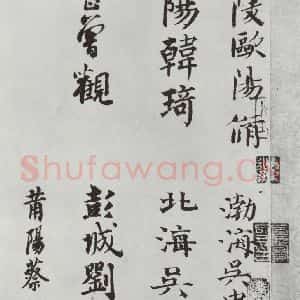 陵歐陽脩
渤海吳
陽韓琦
北海吳
曾觀
彭城劉
莆陽蔡
Shufawang.C